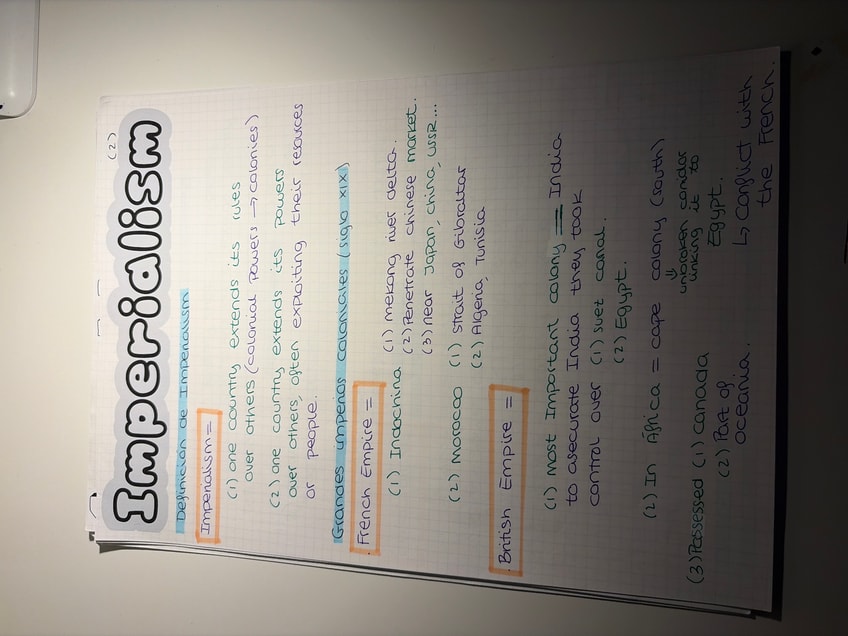 (2)
Imperialism
Definición de Imperialism
Imperialism =
(1) one country extends its rules
over others (colonial Powers → colonies)
(2) one country extends its powers
over others, often exploiting their resources
or people.
Grandes imperios coloniales (siglo XIX)
French Empire =
(1) Indochina (1) mekong river delta.
(2) Penetrate chinese market.
(3) near Japan, china, USSR...
(2) Morocco (1) Strait of Gibraltar
(2) Algeria, Tunisia
British Empire =
(1) Most Important colony = India
to asecurate India they took
control over (1) suez canal.
(2) Egypt.
(2) In África = cape colony (south)
⇓
unbroken corridor
linking it to
Egypt.
↳ conflict with
the French.
(3) Possessed (1) Canada
(2) Part of
oceania.